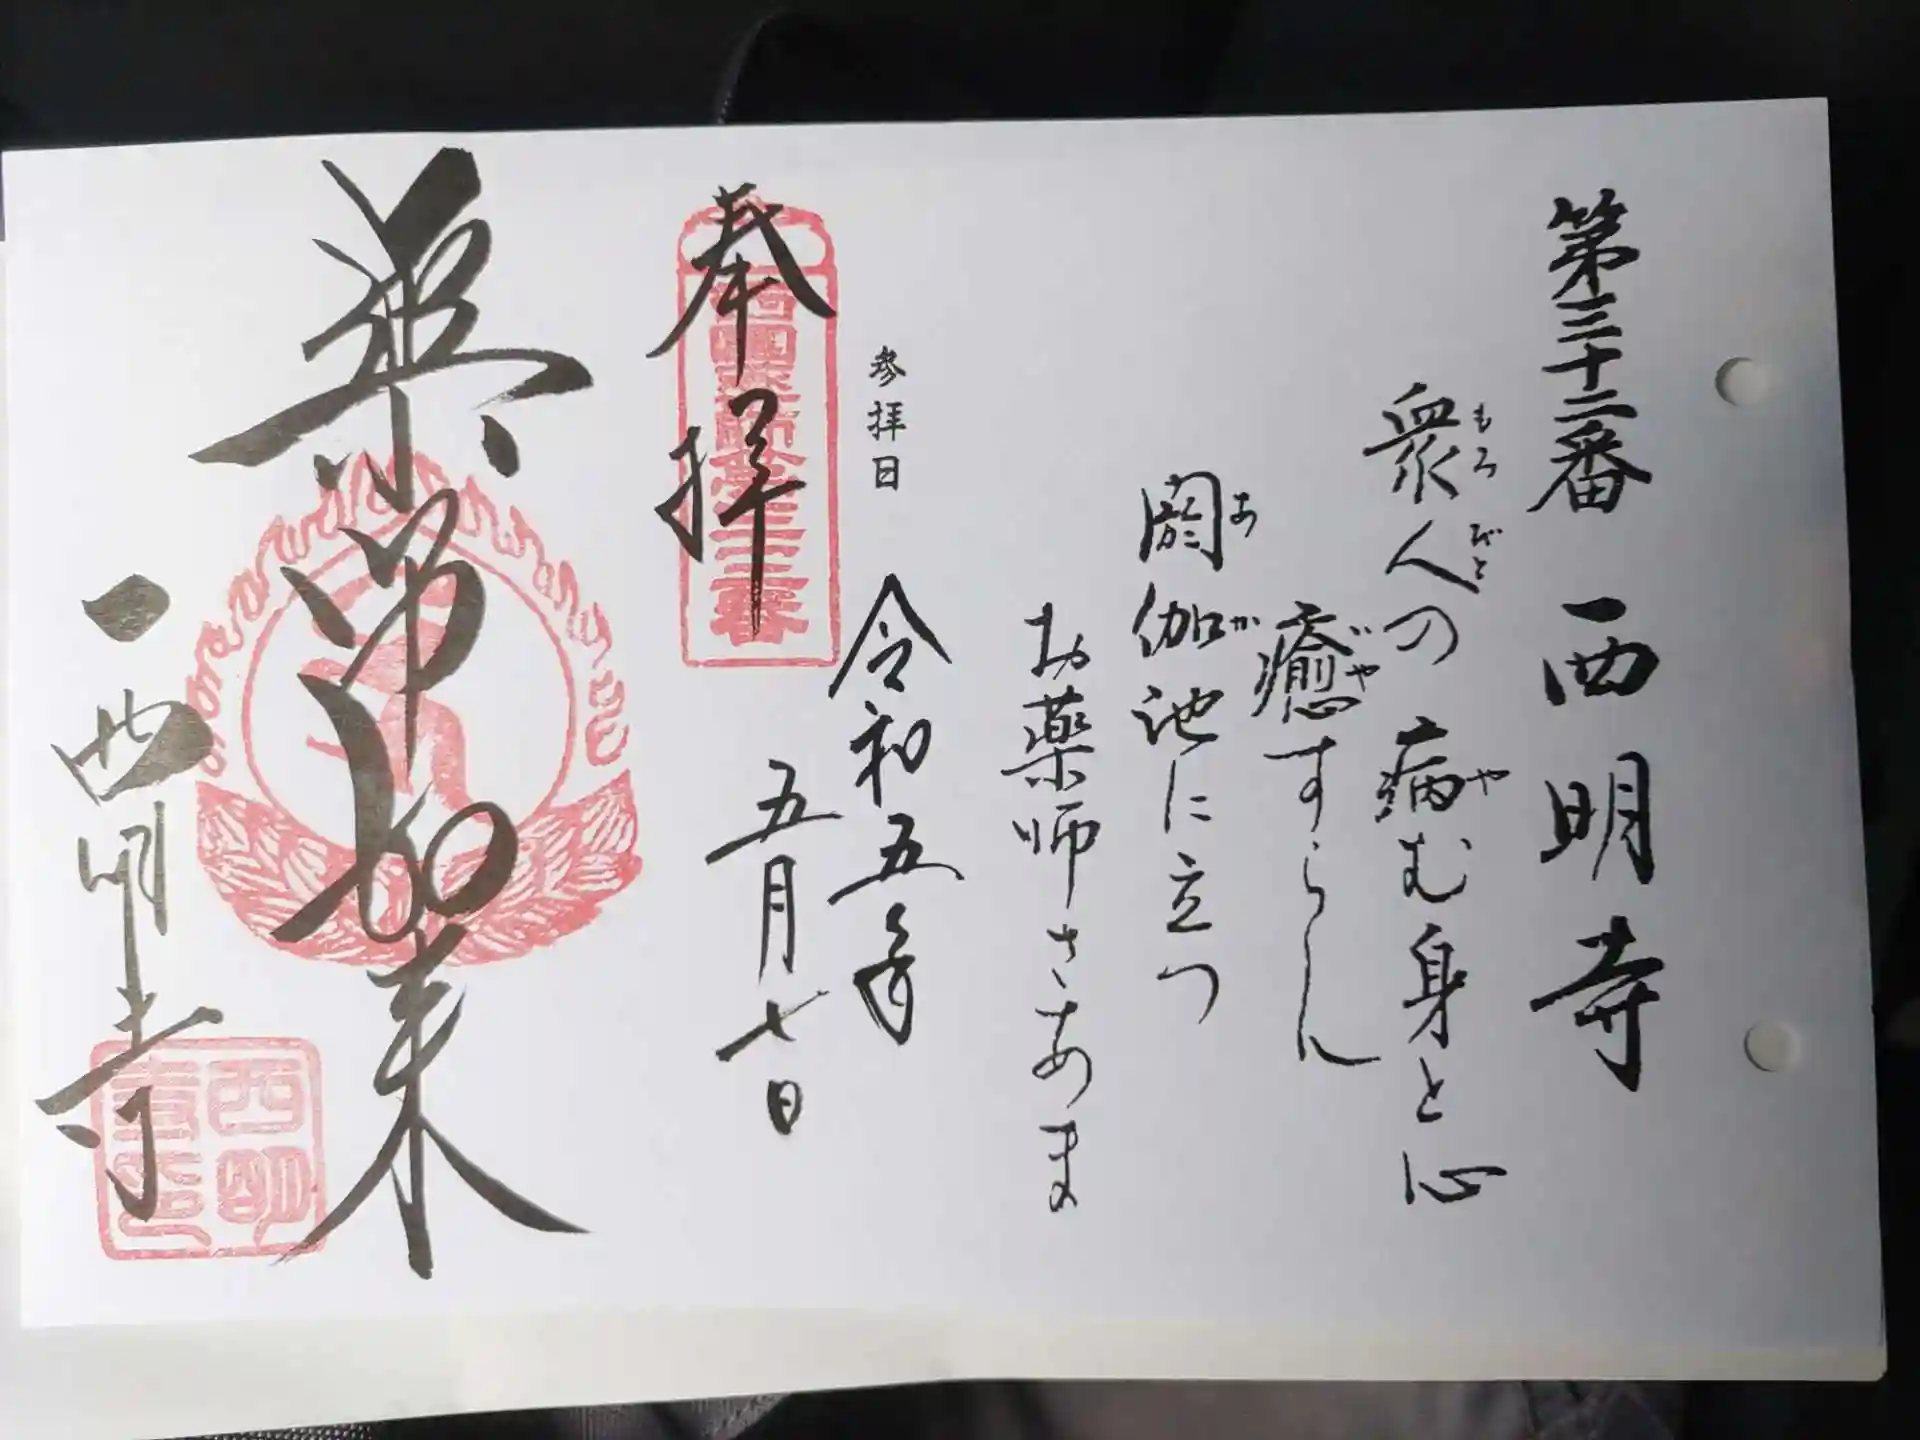 第三十二番 西明寺
衆人の病む身と心
もろびと や
癒すらん
いや
閼伽池に立つ
あか
お薬師さあま
参拝日 令和五年
五月七日
奉拝
西國薬師第三十二番
薬師如来
西明寺
西明
寺印